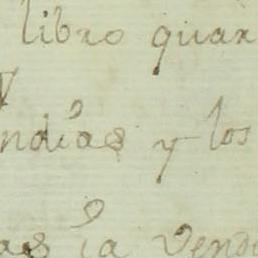 libro quar
ndias y los
as la vend